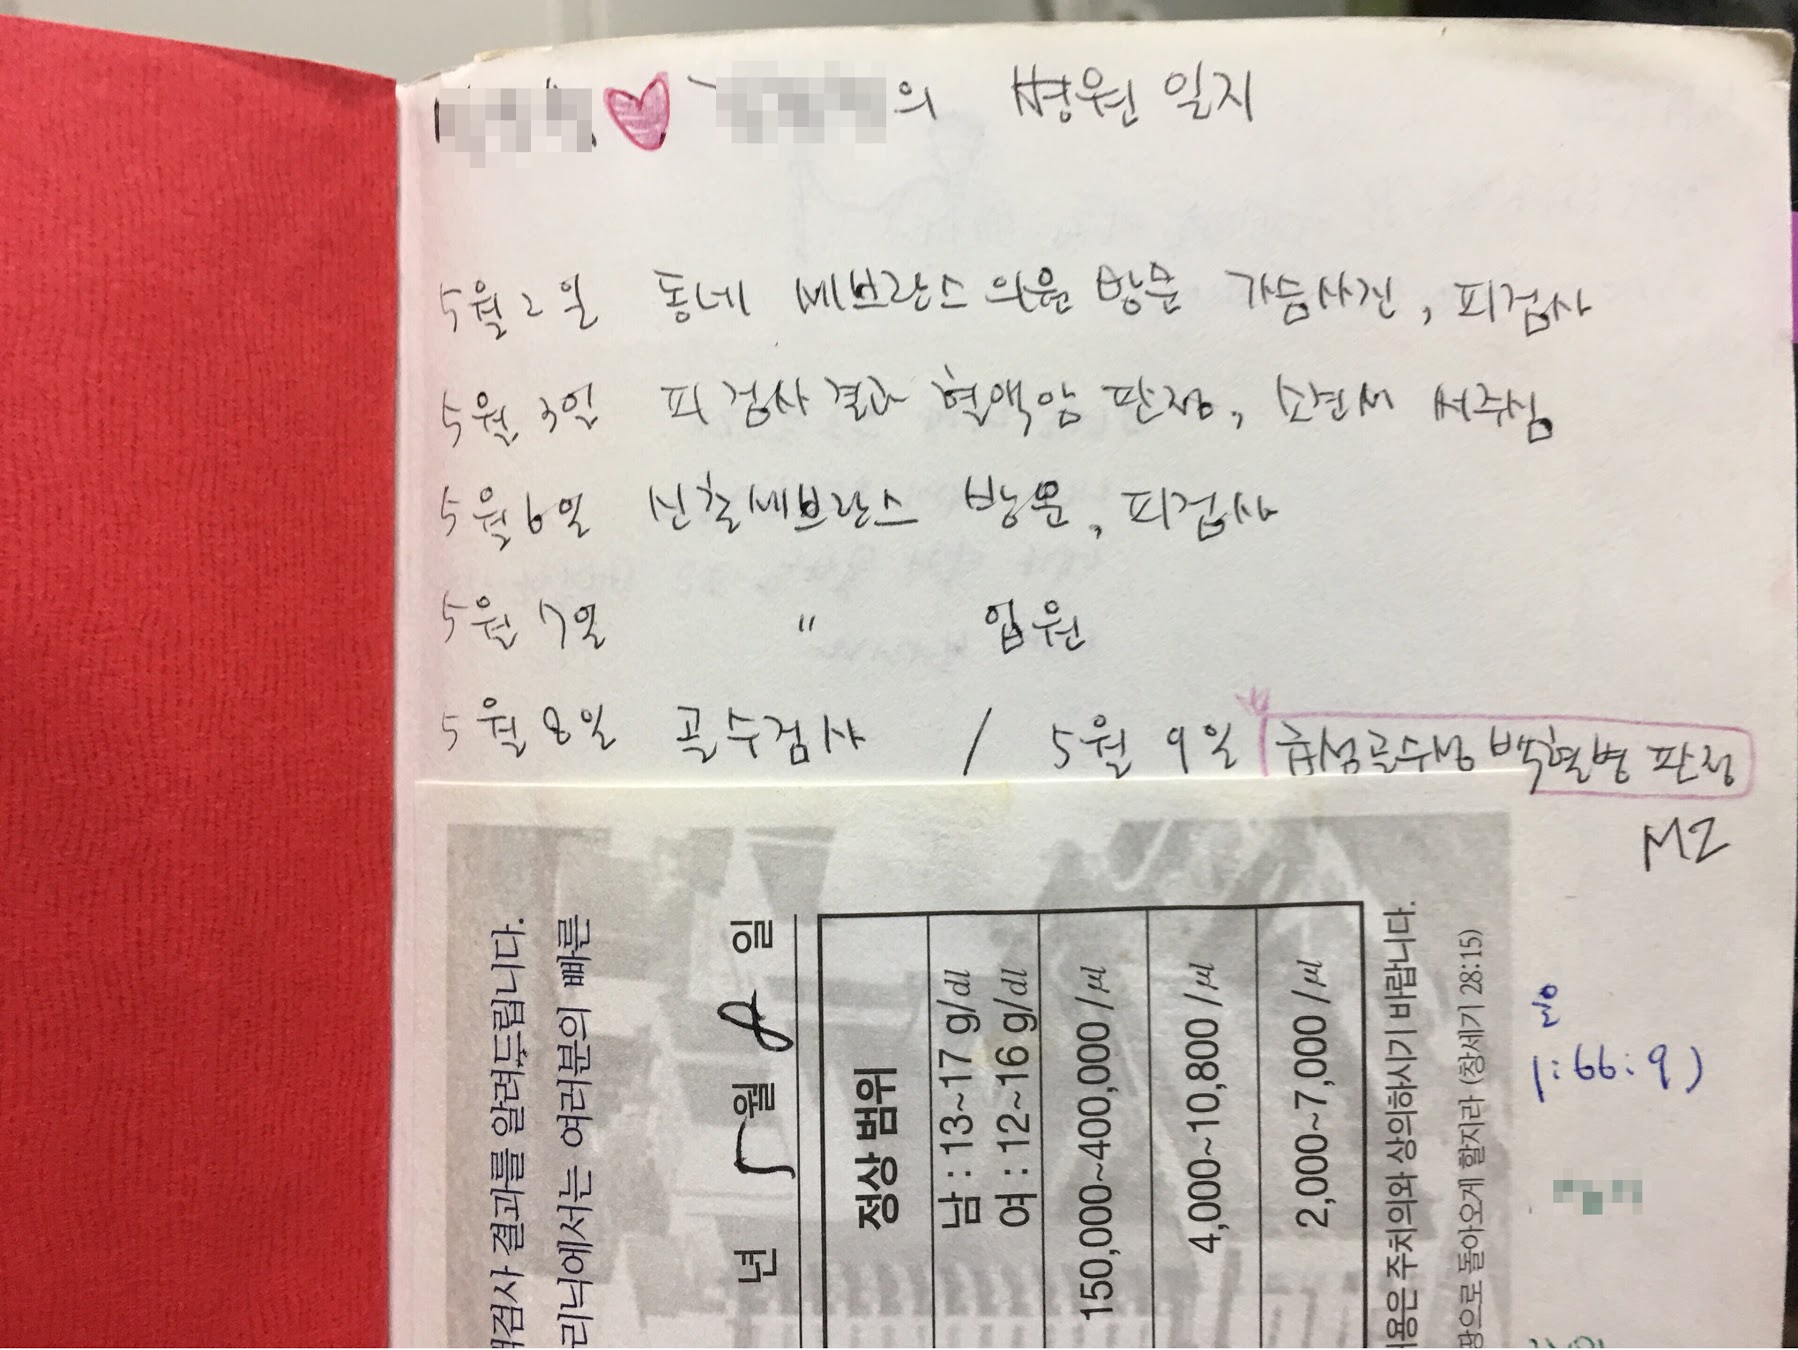 의 병원 일지
5월 2일 동네 세브란스의원 방문 가슴사진, 피검사
5월 3일 피검사 결과 혈액암 판정, 소견서 써주심
5월 6일 신촌세브란스 방문, 피검사
5월 7일 " 입원
5월 8일 골수검사 / 5월 9일 급성골수성 백혈병 판정
M2
검사 결과를 알려드립니다.
리닉에서는 여러분의 빠른
년 5월 8일
정상 범위
남 : 13~17 g/dl
여 : 12~16 g/dl
150,000~400,000 /μl
4,000~10,800 /μl
2,000~7,000 /μl
용은 주치의와 상의하시기 바랍니다.
땅으로 돌아오게 할지라 (창세기 28:15)
1:66:9)